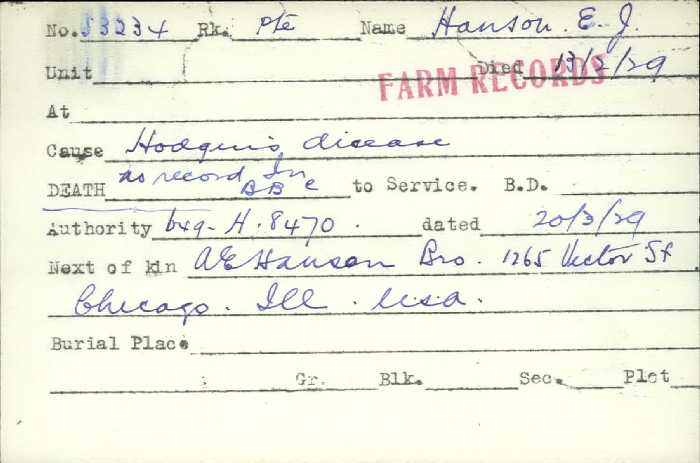 No. 53234 Rk. Pte Name Hanson. E. J.
Unit Died 13/2/29
FARM RECORDS
At
Cause Hodgkin's disease
DEATH as record In BBC to Service. B.D.
Authority bxq- H. 8470. dated 20/3/29
Next of kin A E Hanson Bro. 1265 Victor St
Chicago. Ill. USA.
Burial Place
Gr. Blk. Sec. Plot